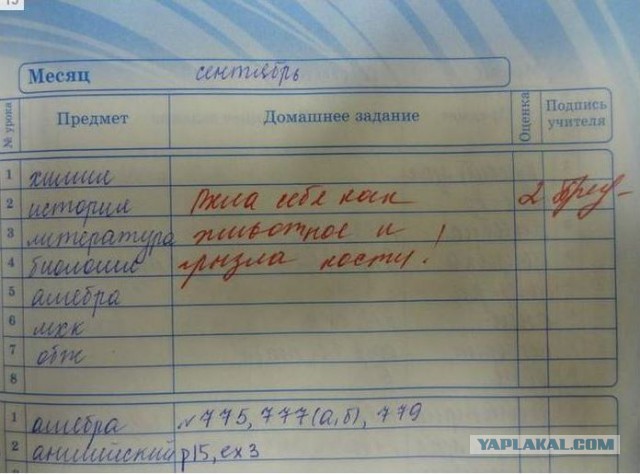 13
Месяц сентябрь
№ урока Предмет Домашнее задание Оценка Подпись учителя
1 химия
2 история Вела себя как 2
3 литература животное и
4 биология грызла кости!
5 алгебра
6 мхк
7 обж
8
1 алгебра №775, 777(а,б), 779
2 английский p15, ex3
YAPLAKAL.COM